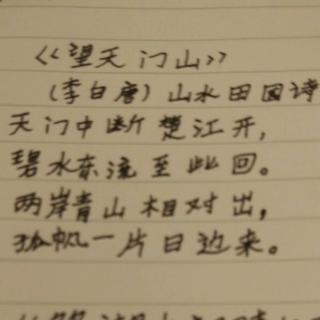 《望天门山》
(李白唐)山水田园诗
天门中断楚江开，
碧水东流至此回。
两岸青山相对出，
孤帆一片日边来。